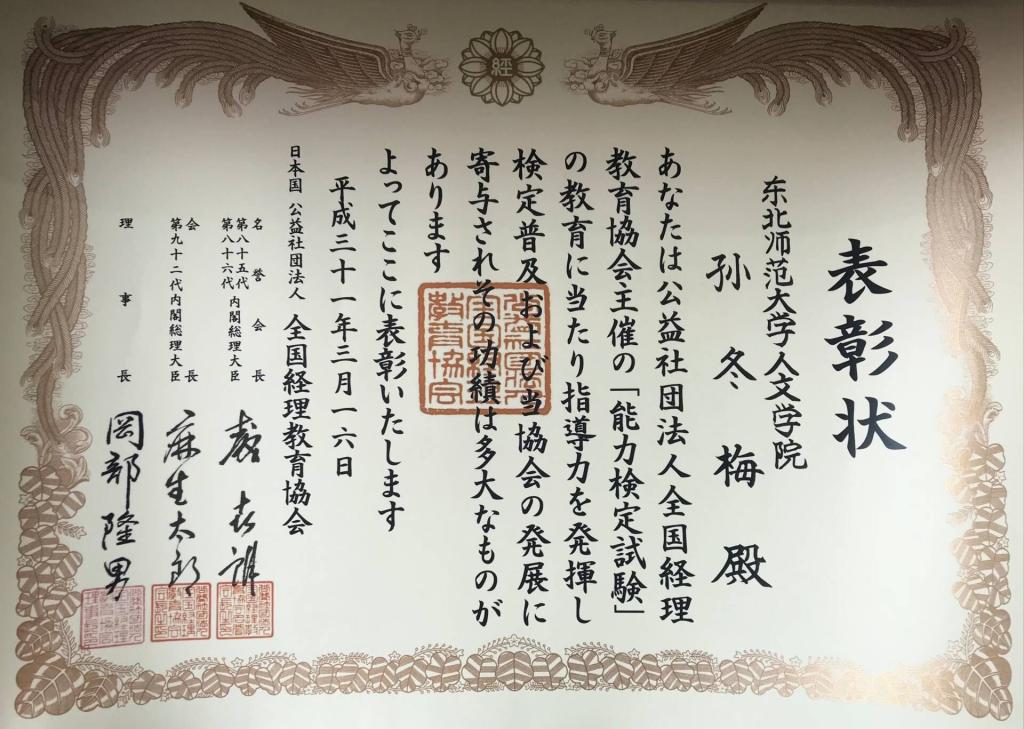 経
表彰状
东北师范大学人文学院
孙冬梅殿
あなたは公益社団法人全国経理
教育協会主催の「能力検定試験」
の教育に当たり指導力を発揮し
検定普及および当協会の発展に
寄与されその功績は多大なものが
あります
よってここに表彰いたします
平成三十一年三月一六日
日本国 公益社団法人 全国経理教育協会
名誉会長
第八十五代
第八十六代 内閣総理大臣
森喜朗
会長
第九十二代内閣総理大臣
麻生太郎
理事長
岡部隆男